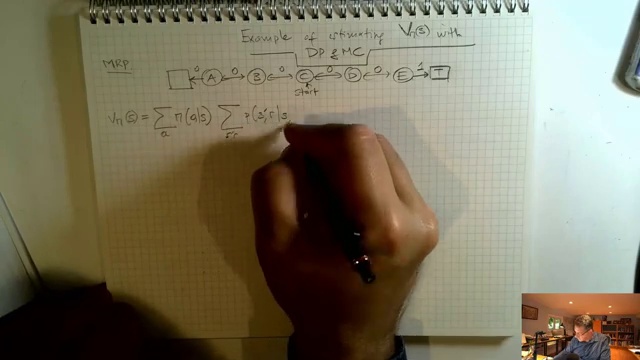 Example of estimating Vπ(s) with
DP & MC
MRP
0 A 0 B 0 C 0 D 0 E 1 T
start
Vπ(s) = ∑ π(a|s) ∑ p(s',r|s
a s',r